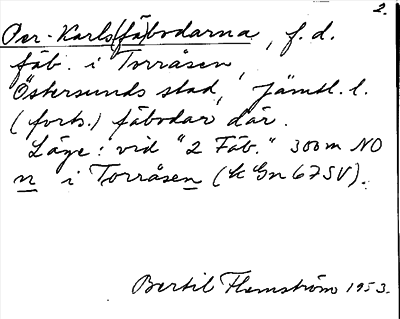 2.
Per-Karls(fä)bodarna, f.d.
fäb. i Torråsen,
Östersunds stad, Jämtl. l.
(forts.) fäbodar där.
Läge: vid "2 Fäb." 300 m NO
n i Torråsen (k Gn 67 SV).
Bertil Flemström 1953.